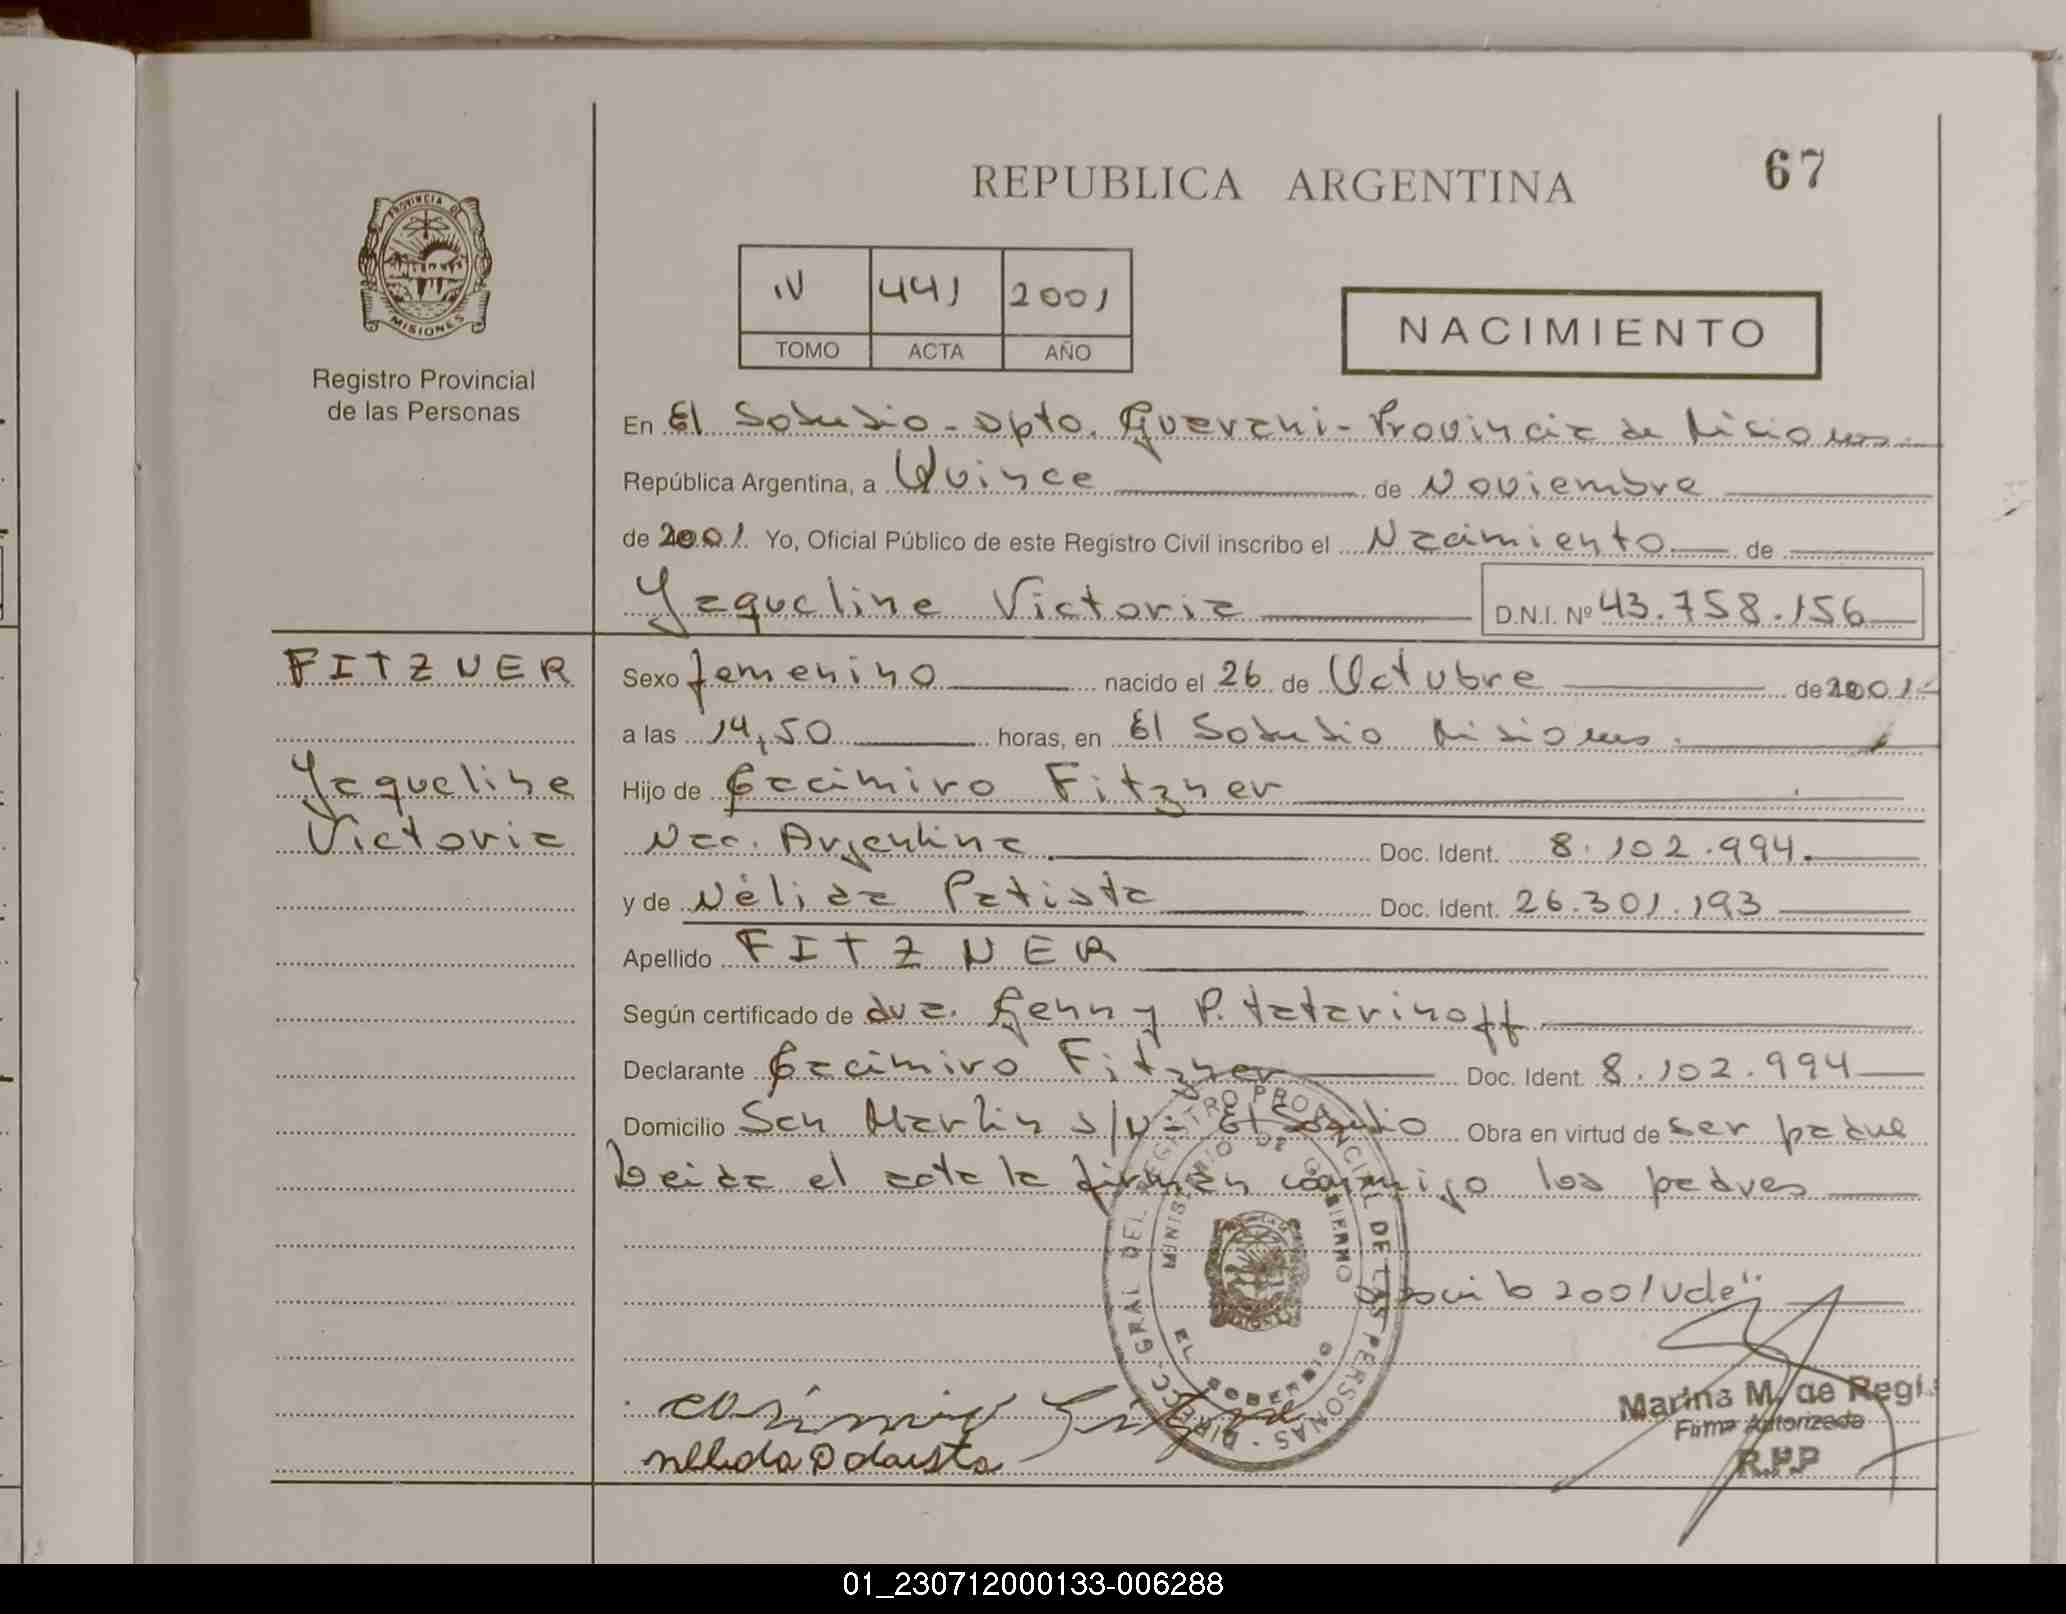 REPUBLICA ARGENTINA
67
PROVINCIA DE
MISIONES
Registro Provincial
de las Personas
IV 441 2001
TOMO ACTA AÑO
NACIMIENTO
En El Soberbio - Dpto. Guarani - Provincia de Misiones
República Argentina, a Quince de Noviembre
de 2001 Yo, Oficial Público de este Registro Civil inscribo el Nacimiento de
Yaqueline Victoria D.N.I. Nº 43.758.156
FITZNER
Yaqueline
Victoria
Sexo femenino nacido el 26 de Octubre de 2001
a las 14,50 horas, en El Soberbio Misiones.
Hijo de Cacimiro Fitzner
Nac. Argentina. Doc. Ident. 8.102.994.
y de Nélida Patista Doc. Ident. 26.301.193
Apellido FITZNER
Según certificado de dra. Genny P. Tatarinoff
Declarante Cacimiro Fitzner Doc. Ident. 8.102.994
Domicilio San Martin s/Nº El Soberbio Obra en virtud de ser padre
Leida el acta la firman conmigo los padres
2001 vale
DIRECC. GRAL DEL REGISTRO PROVINCIAL DE LAS PERSONAS
MINISTERIO DE GOBIERNO
EL SOBERBIO
Marina M. de Regi
Firma Autorizada
R.P.P
01_230712000133-006288